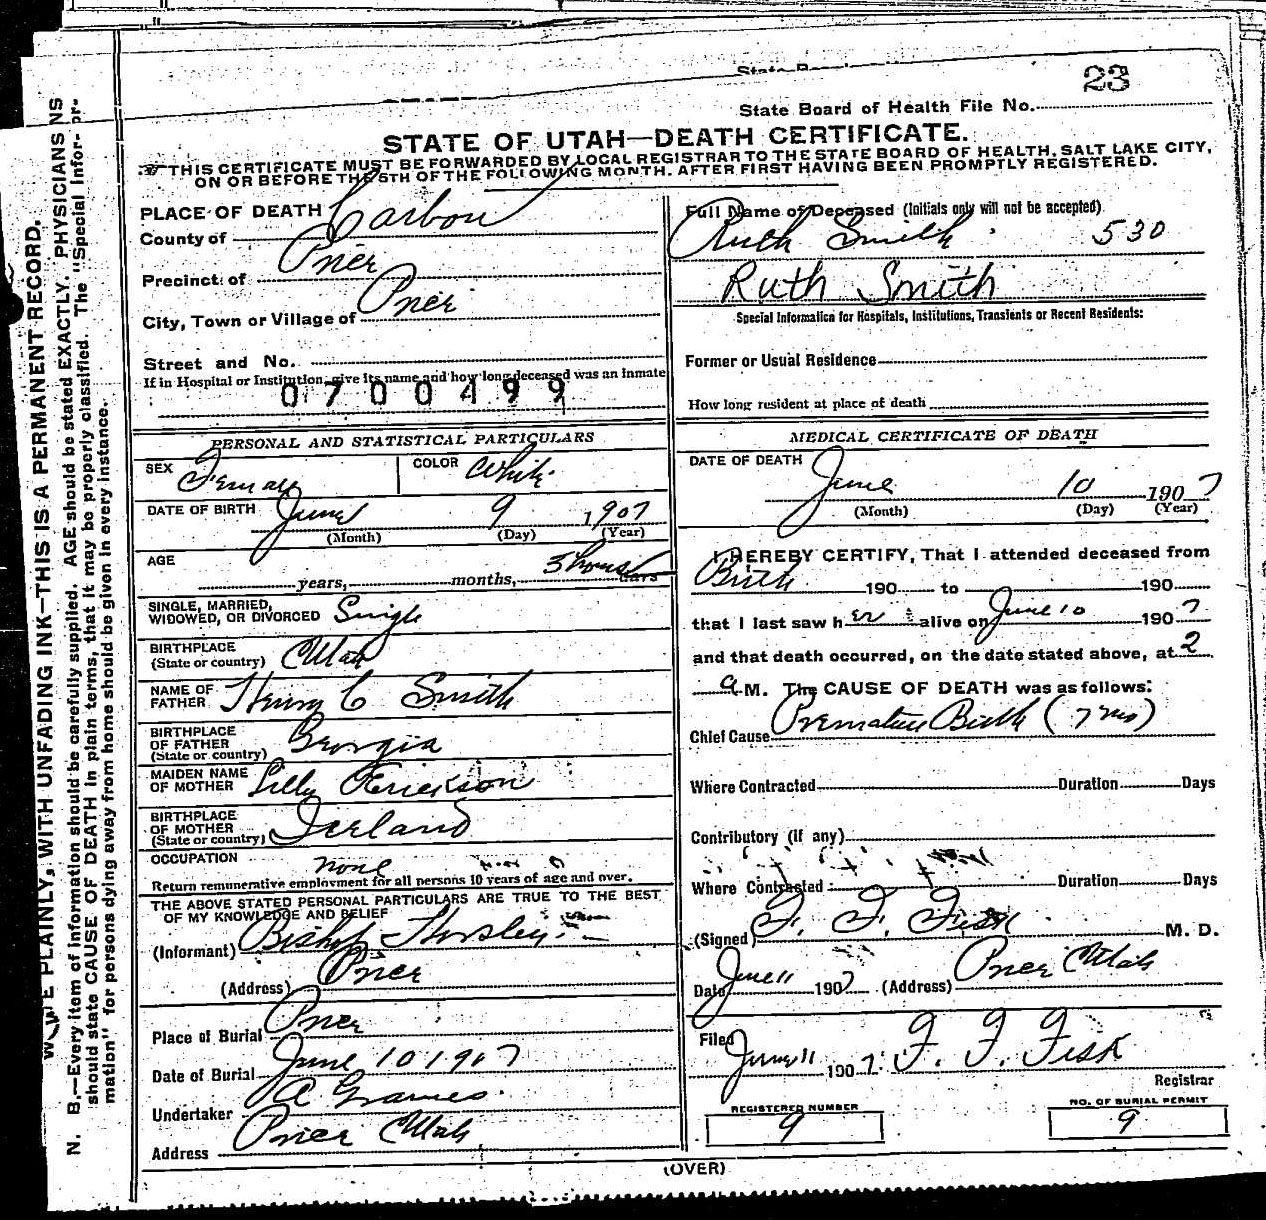 State Board of Health File No. 23
STATE OF UTAH—DEATH CERTIFICATE.
THIS CERTIFICATE MUST BE FORWARDED BY LOCAL REGISTRAR TO THE STATE BOARD OF HEALTH, SALT LAKE CITY,
ON OR BEFORE THE 5TH OF THE FOLLOWING MONTH. AFTER FIRST HAVING BEEN PROMPTLY REGISTERED.
PLACE OF DEATH
County of Carbon
Precinct of Price
City, Town or Village of Price
Street and No.
If in Hospital or Institution, give its name and how long deceased was an inmate
0700499
Full Name of Deceased (Initials only will not be accepted)
Ruth Smith 530
Ruth Smith
Special Information for Hospitals, Institutions, Transients or Recent Residents:
Former or Usual Residence
How long resident at place of death
PERSONAL AND STATISTICAL PARTICULARS
SEX Female COLOR White
DATE OF BIRTH June 9 1907
(Month) (Day) (Year)
AGE
years, months, 5 hours days
SINGLE, MARRIED,
WIDOWED, OR DIVORCED Single
BIRTHPLACE
(State or country) Utah
NAME OF
FATHER Henry C Smith
BIRTHPLACE
OF FATHER
(State or country) Georgia
MAIDEN NAME
OF MOTHER Lilly Erickson
BIRTHPLACE
OF MOTHER
(State or country) Iceland
OCCUPATION none
Return remunerative employment for all persons 10 years of age and over.
THE ABOVE STATED PERSONAL PARTICULARS ARE TRUE TO THE BEST
OF MY KNOWLEDGE AND BELIEF
(Informant) Bishop Horsley
(Address) Price
Place of Burial Price
Date of Burial June 10 1907
Undertaker A Grames
Address Price Utah
MEDICAL CERTIFICATE OF DEATH
DATE OF DEATH
June 10 1907
(Month) (Day) (Year)
I HEREBY CERTIFY, That I attended deceased from
Birth 190 to 190
that I last saw her alive on June 10 1907
and that death occurred, on the date stated above, at 2
a.M. The CAUSE OF DEATH was as follows:
Chief Cause Premature Birth (7 mo)
Where Contracted Duration Days
Contributory (if any)
Where Contracted Duration Days
(Signed) F. F. Fisk M. D.
Date June 11 1907 (Address) Price Utah
Filed June 11 1907. F. F. Fisk
Registrar
REGISTERED NUMBER
9
NO. OF BURIAL PERMIT
9
(OVER)
PLAINLY, WITH UNFADING INK—THIS IS A PERMANENT RECORD.
N. B.—Every item of information should be carefully supplied. AGE should be stated EXACTLY. PHYSICIANS
should state CAUSE OF DEATH in plain terms, that it may be properly classified. The "Special Infor-
mation" for persons dying away from home should be given in every instance.